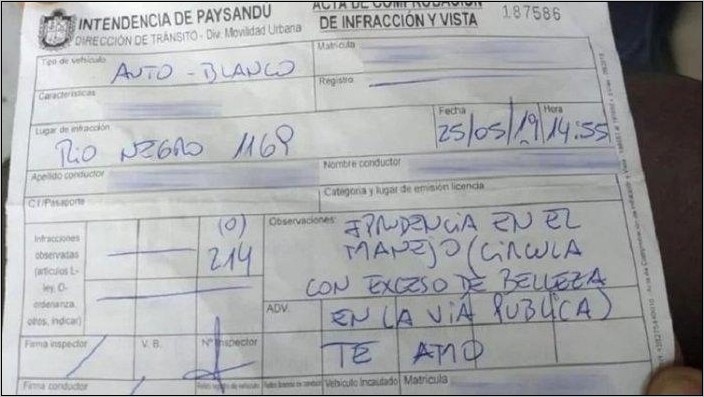 INTENDENCIA DE PAYSANDU
DIRECCIÓN DE TRÁNSITO - Div. Movilidad Urbana
ACTA DE COMPROBACION
DE INFRACCIÓN Y VISTA
187586
Tipo de vehículo
AUTO - BLANCO
Matrícula
Características
Registro
Lugar de infracción
RIO NEGRO 1169
Fecha
25/05/19
Hora
14:55
Apellido conductor
Nombre conductor
C.I/Pasaporte
Categoría y lugar de emisión licencia
Infracciones
observadas
(artículos L-
ley, O-
ordenanza,
otros, indicar)
(0)
214
Observaciones:
IPRUDENCIA EN EL
MANEJO (CIRCULA
CON EXCESO DE BELLEZA
EN LA VIA PUBLICA)
ADV.
TE AMO
Firma inspector
V. B.
Nº Inspector
Firma conductor
Vehículo Incautado
Matrícula